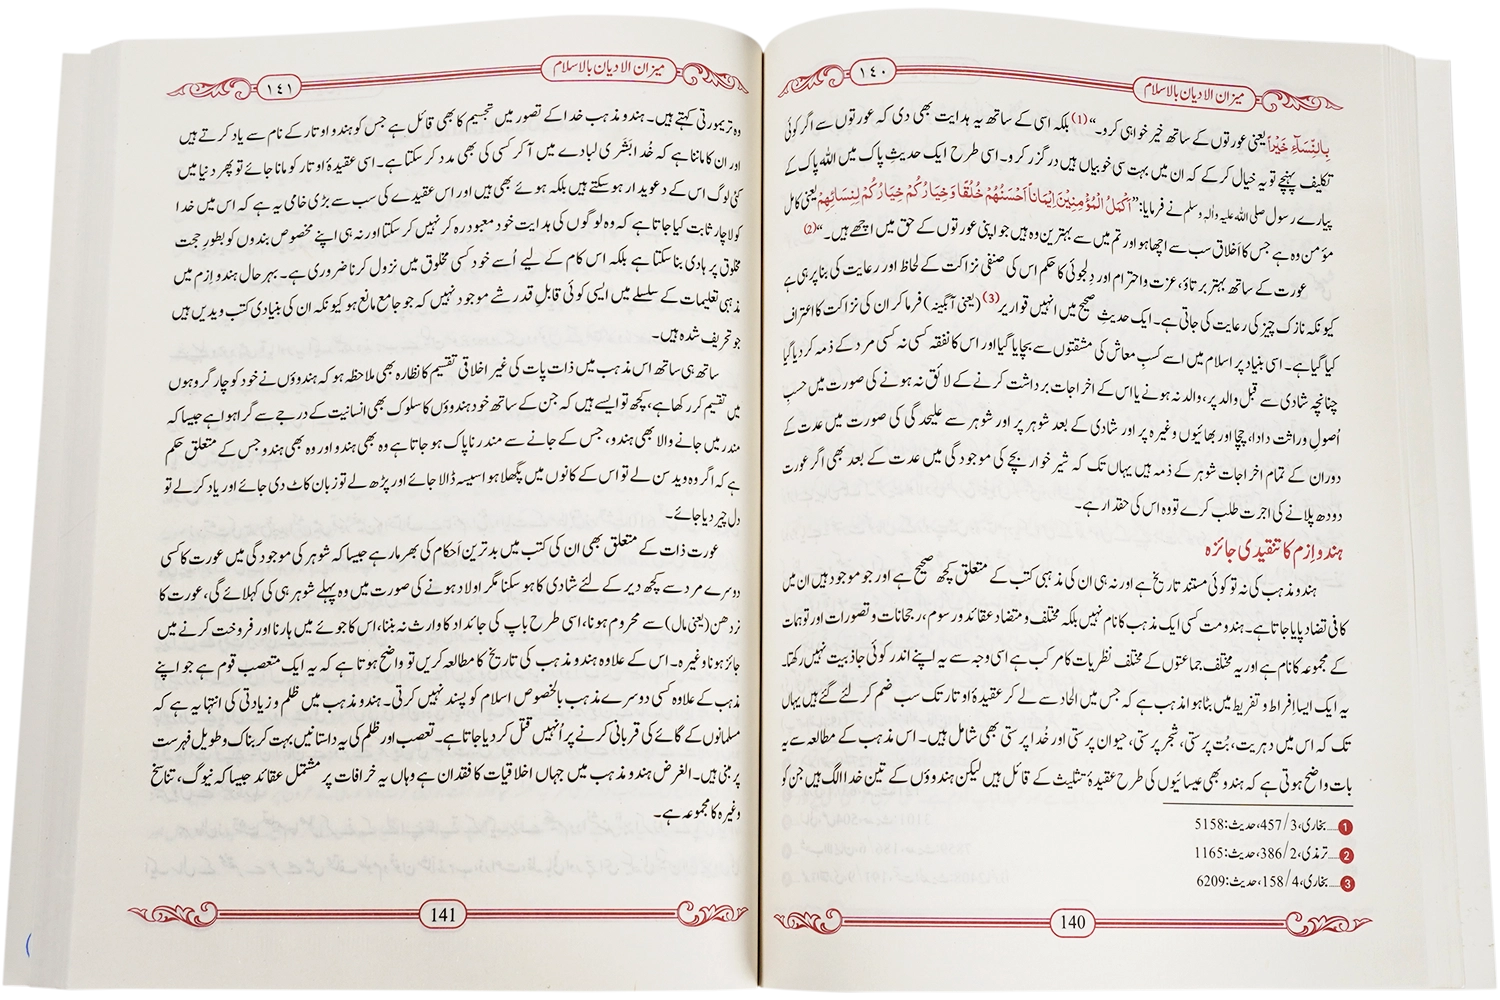 میزان الادیان بالاسلام
١٤٠
بِالنِّسَآءِ خَیْراً یعنی عورتوں کے ساتھ خیر خواہی کرو۔“(1) بلکہ اسی کے ساتھ یہ ہدایت بھی دی کہ عورتوں سے اگر کوئی
تکلیف پہنچے تو یہ خیال کرے کہ ان میں بہت سی خوبیاں ہیں درگزر کرو۔ اسی طرح ایک حدیثِ پاک میں اللہ پاک کے
پیارے رسول صلی اللہ علیہ واٰلہٖ وسلم نے فرمایا: ”اَکْمَلُ الْمُؤْمِنِیْنَ اِیْمَاناً اَحْسَنُهُمْ خُلُقًا وَخِیَارُکُمْ خِیَارُکُمْ لِنِسَائِهِمْ یعنی کامل
مؤمن وہ ہے جس کا اَخلاق سب سے اچھا ہو اور تم میں سے بہترین وہ ہیں جو اپنی عورتوں کے حق میں اچھے ہیں۔“(2)
عورت کے ساتھ بہتر برتاؤ، عزت و احترام اور دلجوئی کا حکم اس کی صنفی نزاکت کے لحاظ اور رعایت کی بنا پر ہی ہے
کیونکہ نازک چیز کی رعایت کی جاتی ہے۔ ایک حدیثِ صحیح میں انہیں قواریر(3) (یعنی آبگینہ) فرما کر ان کی نزاکت کا اعتراف
کیا گیا ہے۔ اسی بنیاد پر اسلام میں اسے کسبِ معاش کی مشقتوں سے بچایا گیا اور اس کا نفقہ کسی نہ کسی مرد کے ذمہ کر دیا گیا
چنانچہ شادی سے قبل والد پر، والد نہ ہونے یا اس کے اخراجات برداشت کرنے کے لائق نہ ہونے کی صورت میں حسبِ
اُصولِ وراثت دادا، چچا اور بھائیوں وغیرہ پر اور شادی کے بعد شوہر پر اور شوہر سے علیحدگی کی صورت میں عدت کے
دوران کے تمام اخراجات شوہر کے ذمہ ہیں یہاں تک کہ شیر خوار بچے کی موجودگی میں عدت کے بعد بھی اگر عورت
دودھ پلانے کی اجرت طلب کرے تو وہ اس کی حقدار ہے۔
ہندو اِزم کا تنقیدی جائزہ
ہندو مذہب کی نہ تو کوئی مستند تاریخ ہے اور نہ ہی ان کی مذہبی کتب کے متعلق کچھ صحیح ہے اور جو موجود ہیں ان میں
کافی تضاد پایا جاتا ہے۔ ہندو مت کسی ایک مذہب کا نام نہیں بلکہ مختلف و متضاد عقائد و رسوم، رجحانات و تصورات اور توہمات
کے مجموعہ کا نام ہے اور یہ مختلف جماعتوں کے مختلف نظریات کا مرکب ہے اسی وجہ سے یہ اپنے اندر کوئی جاذبیت نہیں رکھتا۔
یہ ایک ایسا اِفراط و تفریط میں بٹا ہوا مذہب ہے کہ جس میں الحاد سے لے کر عقیدۂ اوتار تک سب ضم کر لئے گئے ہیں یہاں
تک کہ اس میں دہریت، بُت پرستی، شجر پرستی، حیوان پرستی اور خُدا پرستی بھی شامل ہیں۔ اس مذہب کے مطالعہ سے یہ
بات واضح ہوتی ہے کہ ہندو بھی عیسائیوں کی طرح عقیدۂ تثلیث کے قائل ہیں لیکن ہندوؤں کے تین خدا الگ ہیں جن کو
1 ..... بخاری، 3/457، حدیث: 5158
2 ..... ترمذی، 2/386، حدیث: 1165
3 ..... بخاری، 4/158، حدیث: 6209
140
میزان الادیان بالاسلام
١٤١
وہ تریمورتی کہتے ہیں۔ ہندو مذہب خدا کے تصور میں تجسیم کا بھی قائل ہے جس کو ہندو اوتار کے نام سے یاد کرتے ہیں
اور ان کا ماننا ہے کہ خُدا بشَری لبادے میں آکر کسی کی بھی مدد کر سکتا ہے۔ اسی عقیدۂ اوتار کو مانا جائے تو پھر دنیا میں
کئی لوگ اس کے دعویدار ہو سکتے ہیں بلکہ ہوئے بھی ہیں اور اس عقیدے کی سب سے بڑی خامی یہ ہے کہ اس میں خدا
کو لاچار ثابت کیا جاتا ہے کہ وہ لوگوں کی ہدایت خود معبود رہ کر نہیں کر سکتا اور نہ ہی اپنے مخصوص بندوں کو بطورِ حجت
مخلوق پر ہادی بنا سکتا ہے بلکہ اس کام کے لیے اُسے خود کسی مخلوق میں نزول کرنا ضروری ہے۔ بہر حال ہندو اِزم میں
مذہبی تعلیمات کے سلسلے میں ایسی کوئی قابلِ قدر شے موجود نہیں کہ جو جامع مانع ہو کیونکہ ان کی بنیادی کتب ویدیں ہیں
جو تحریف شدہ ہیں۔
ساتھ ہی ساتھ اس مذہب میں ذات پات کی غیر اخلاقی تقسیم کا نظارہ بھی ملاحظہ ہو کہ ہندوؤں نے خود کو چار گروہوں
میں تقسیم کر رکھا ہے، کچھ تو ایسے ہیں کہ جن کے ساتھ خود ہندوؤں کا سلوک بھی انسانیت کے درجے سے گرا ہوا ہے جیسا کہ
مندر میں جانے والا بھی ہندو، جس کے جانے سے مندر ناپاک ہو جاتا ہے وہ بھی ہندو اور وہ بھی ہندو جس کے متعلق حکم
ہے کہ اگر وہ وید سن لے تو اس کے کانوں میں پگھلا ہوا سیسہ ڈالا جائے اور پڑھ لے تو زبان کاٹ دی جائے اور یاد کر لے تو
دل چیر دیا جائے۔
عورت ذات کے متعلق بھی ان کی کتب میں بدترین اَحکام کی بھرمار ہے جیسا کہ شوہر کی موجودگی میں عورت کا کسی
دوسرے مرد سے کچھ دیر کے لئے شادی کا ہو سکنا مگر اولاد ہونے کی صورت میں وہ پہلے شوہر ہی کی کہلائے گی، عورت کا
نردھن (یعنی مال) سے محروم ہونا، اسی طرح باپ کی جائداد کا وارث نہ بننا، اس کا جوئے میں ہارنا اور فروخت کرنے میں
جائز ہونا وغیرہ۔ اس کے علاوہ ہندو مذہب کی تاریخ کا مطالعہ کریں تو واضح ہوتا ہے کہ یہ ایک متعصب قوم ہے جو اپنے
مذہب کے علاوہ کسی دوسرے مذہب بالخصوص اسلام کو پسند نہیں کرتی۔ ہندو مذہب میں ظلم و زیادتی کی انتہا یہ ہے کہ
مسلمانوں کے گائے کی قربانی کرنے پر اُنہیں قتل کر دیا جاتا ہے۔ تعصب اور ظلم کی یہ داستانیں بہت کربناک و طویل فہرست
پر مبنی ہیں۔ الغرض ہندو مذہب میں جہاں اخلاقیات کا فقدان ہے وہاں یہ خرافات پر مشتمل عقائد جیسا کہ نیوگ، تناسخ
وغیرہ کا مجموعہ ہے۔
141